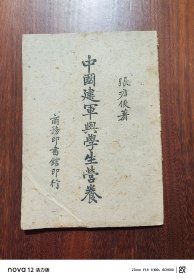 張治俊著
中國建軍與學生營養
商務印書館印行
nova 12 活力版